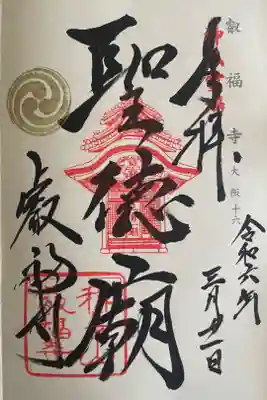 奉拝
叡福寺 大阪十六
令和六年
三月廿一日
聖徳廟
叡福寺